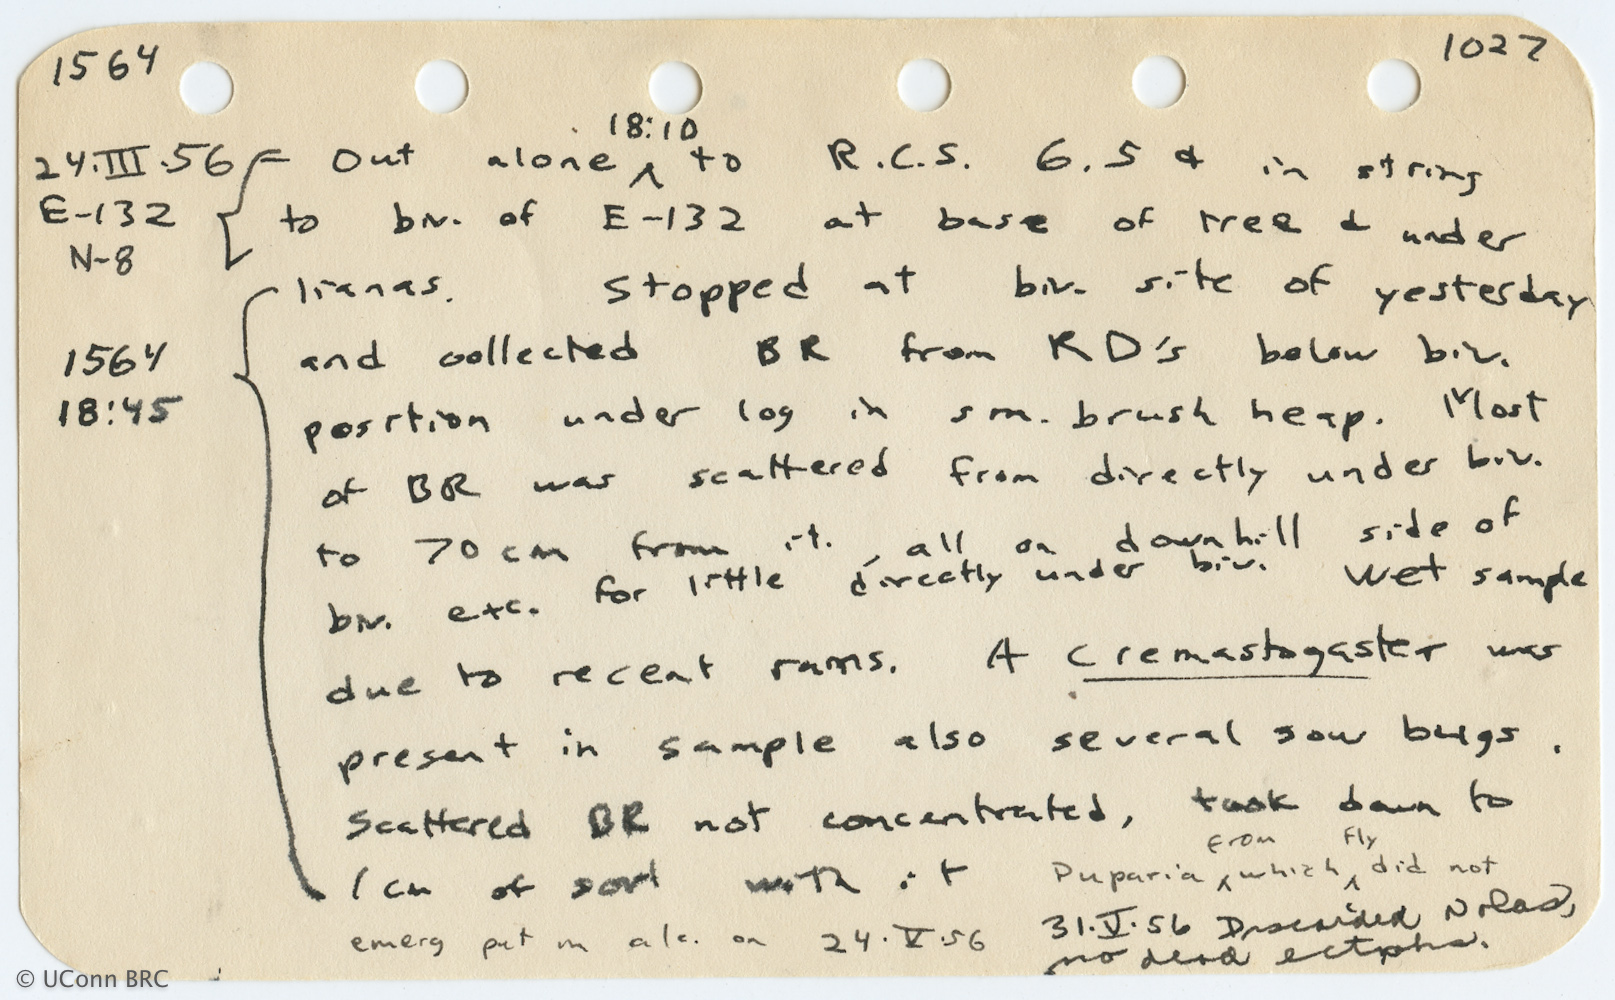 1564
1027
18:10
24.III.56 Out alone ^ to R.C.S. 6.5 & in string
E-132 to biv. of E-132 at base of tree & under
N-8
lianas. Stopped at biv. site of yesterday
1564 and collected BR from RD's below biv.
18:45 position under log in sm. brush heap. Most
of BR was scattered from directly under biv.
to 70 cm from it. all on downhill side of
biv. etc. for little directly under biv. Wet sample
due to recent rains. A Cremastogaster was
present in sample also several sow bugs.
Scattered BR not concentrated, took down to
from fly
1 cm of soil with it Puparia ^ which ^ did not
emerg put in alc. on 24.V.56 31.V.56 Discarded
no dead
© UConn BRC